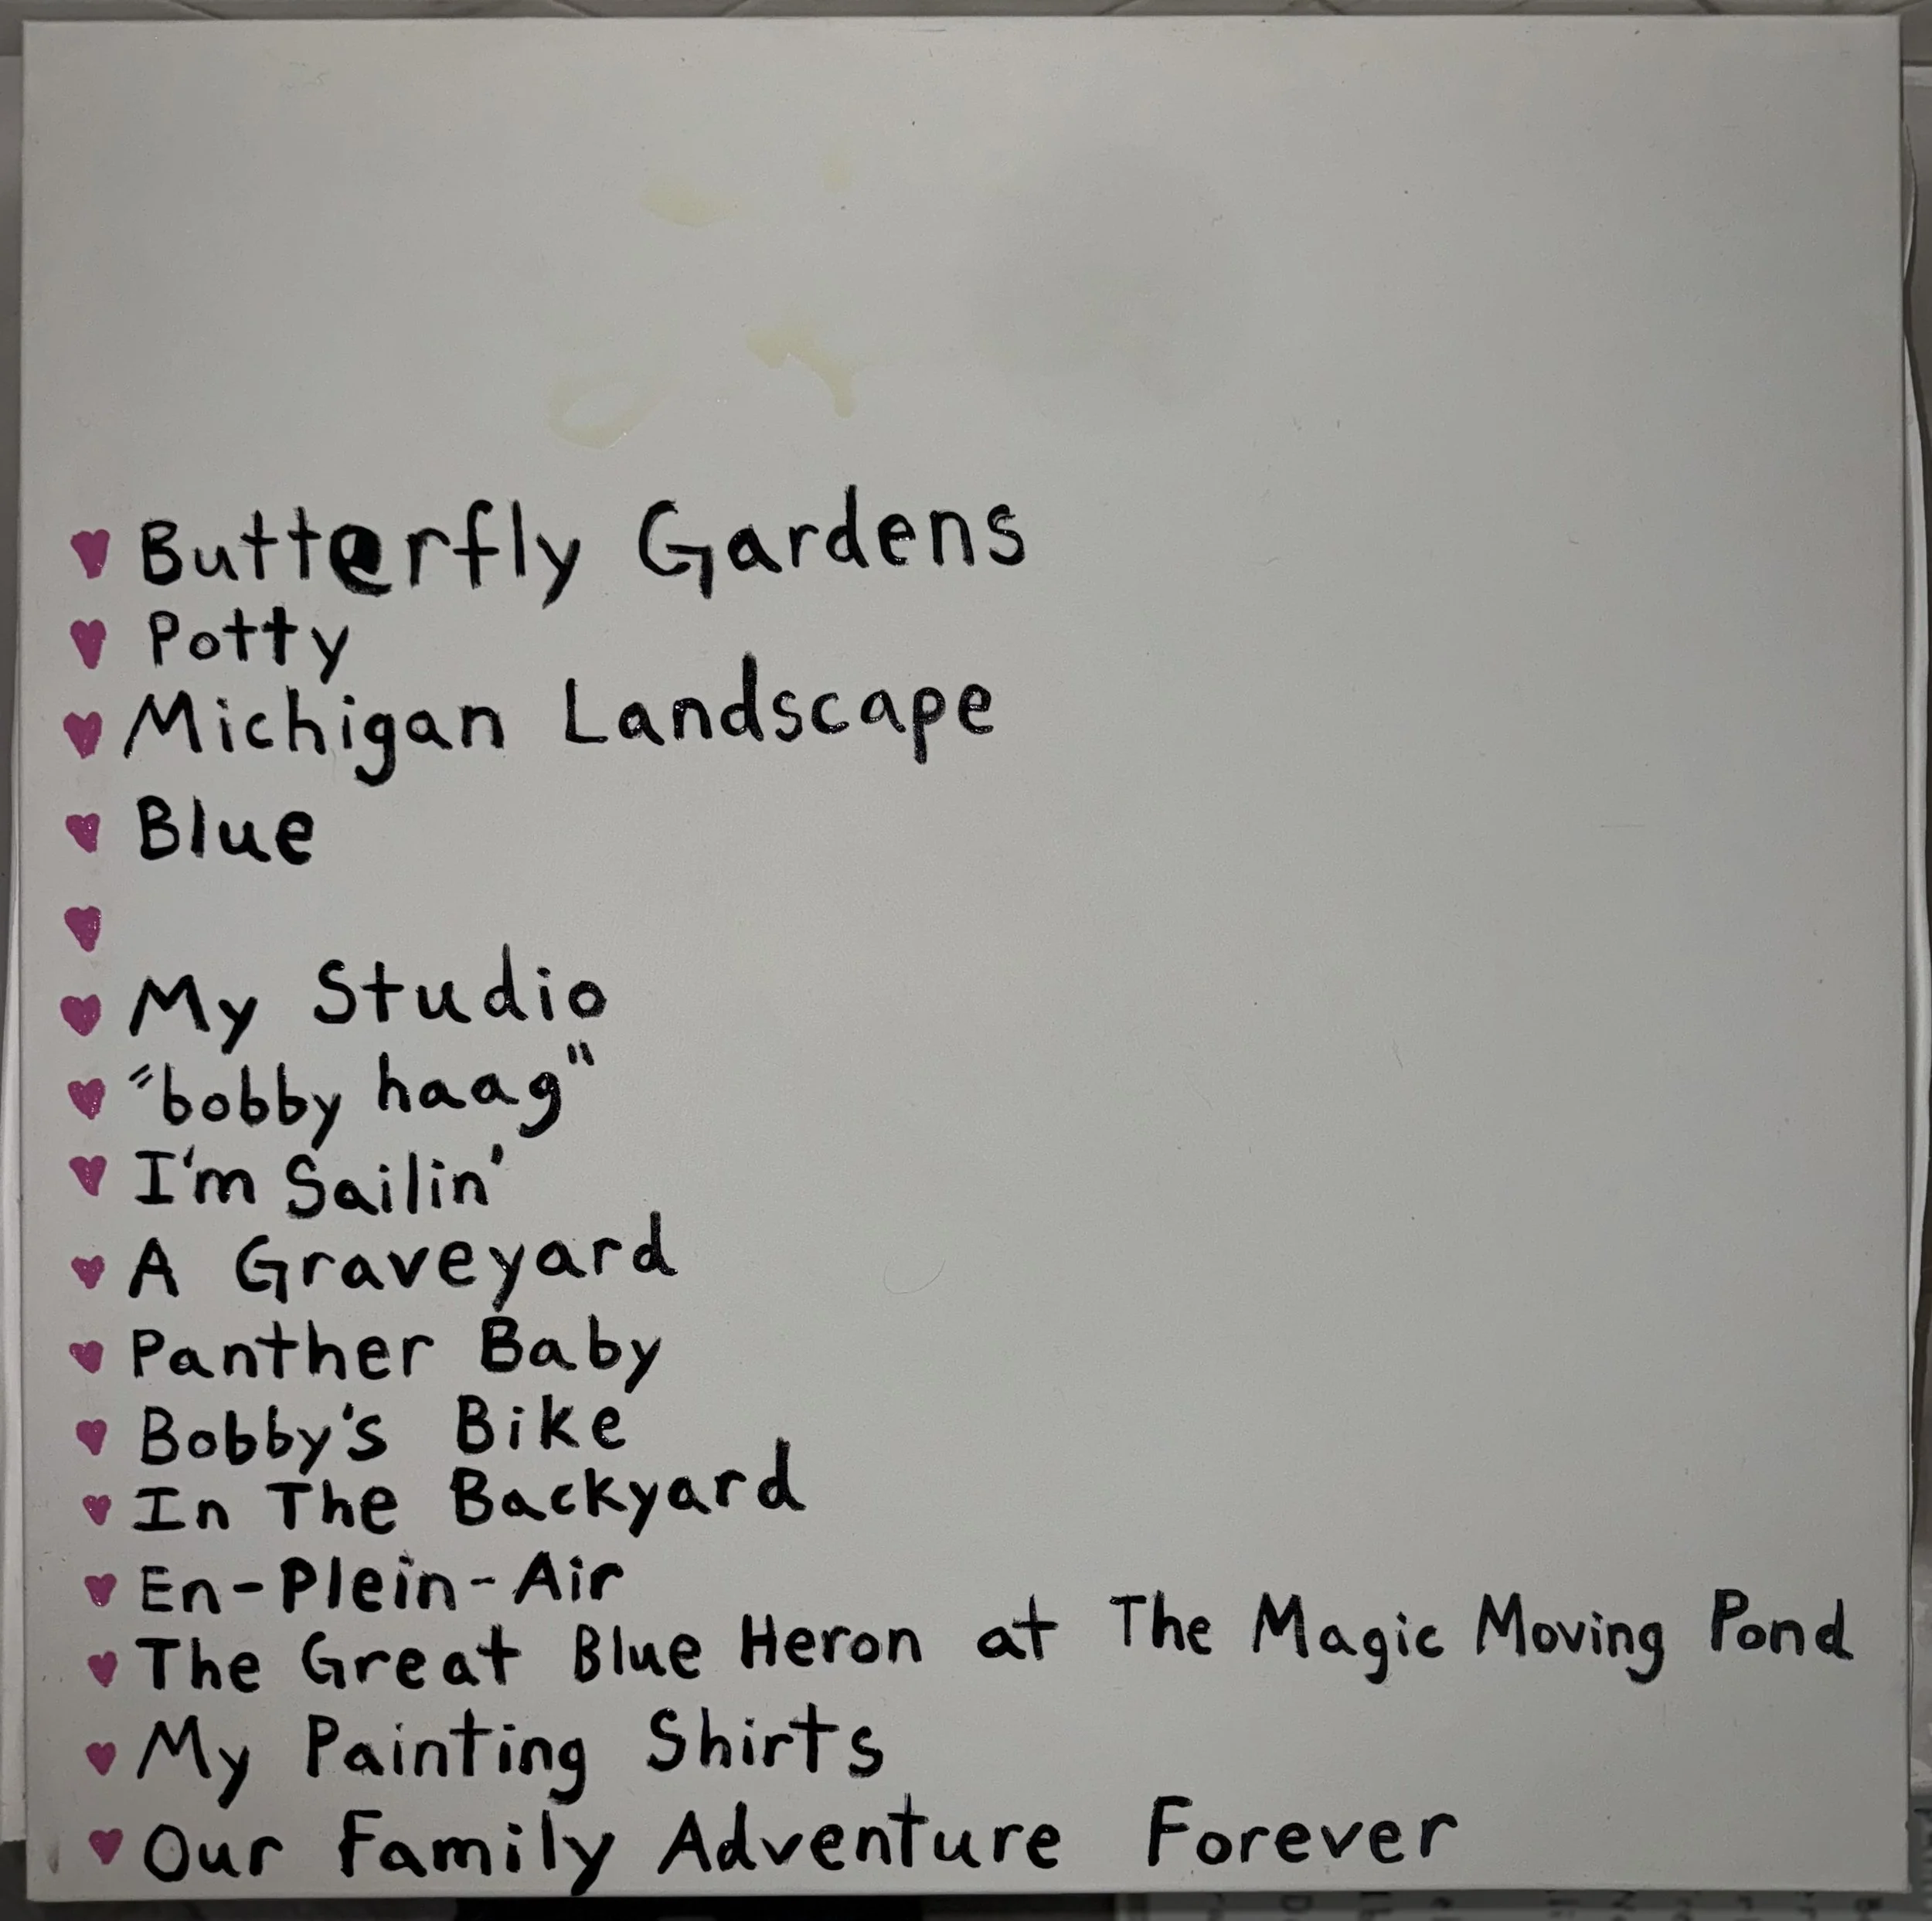 Butterfly Gardens
Potty
Michigan Landscape
Blue
My Studio
"bobby haag"
I'm Sailin'
A Graveyard
Panther Baby
Bobby's Bike
In The Backyard
En-Plein-Air
The Great Blue Heron at The Magic Moving Pond
My Painting Shirts
Our Family Adventure Forever